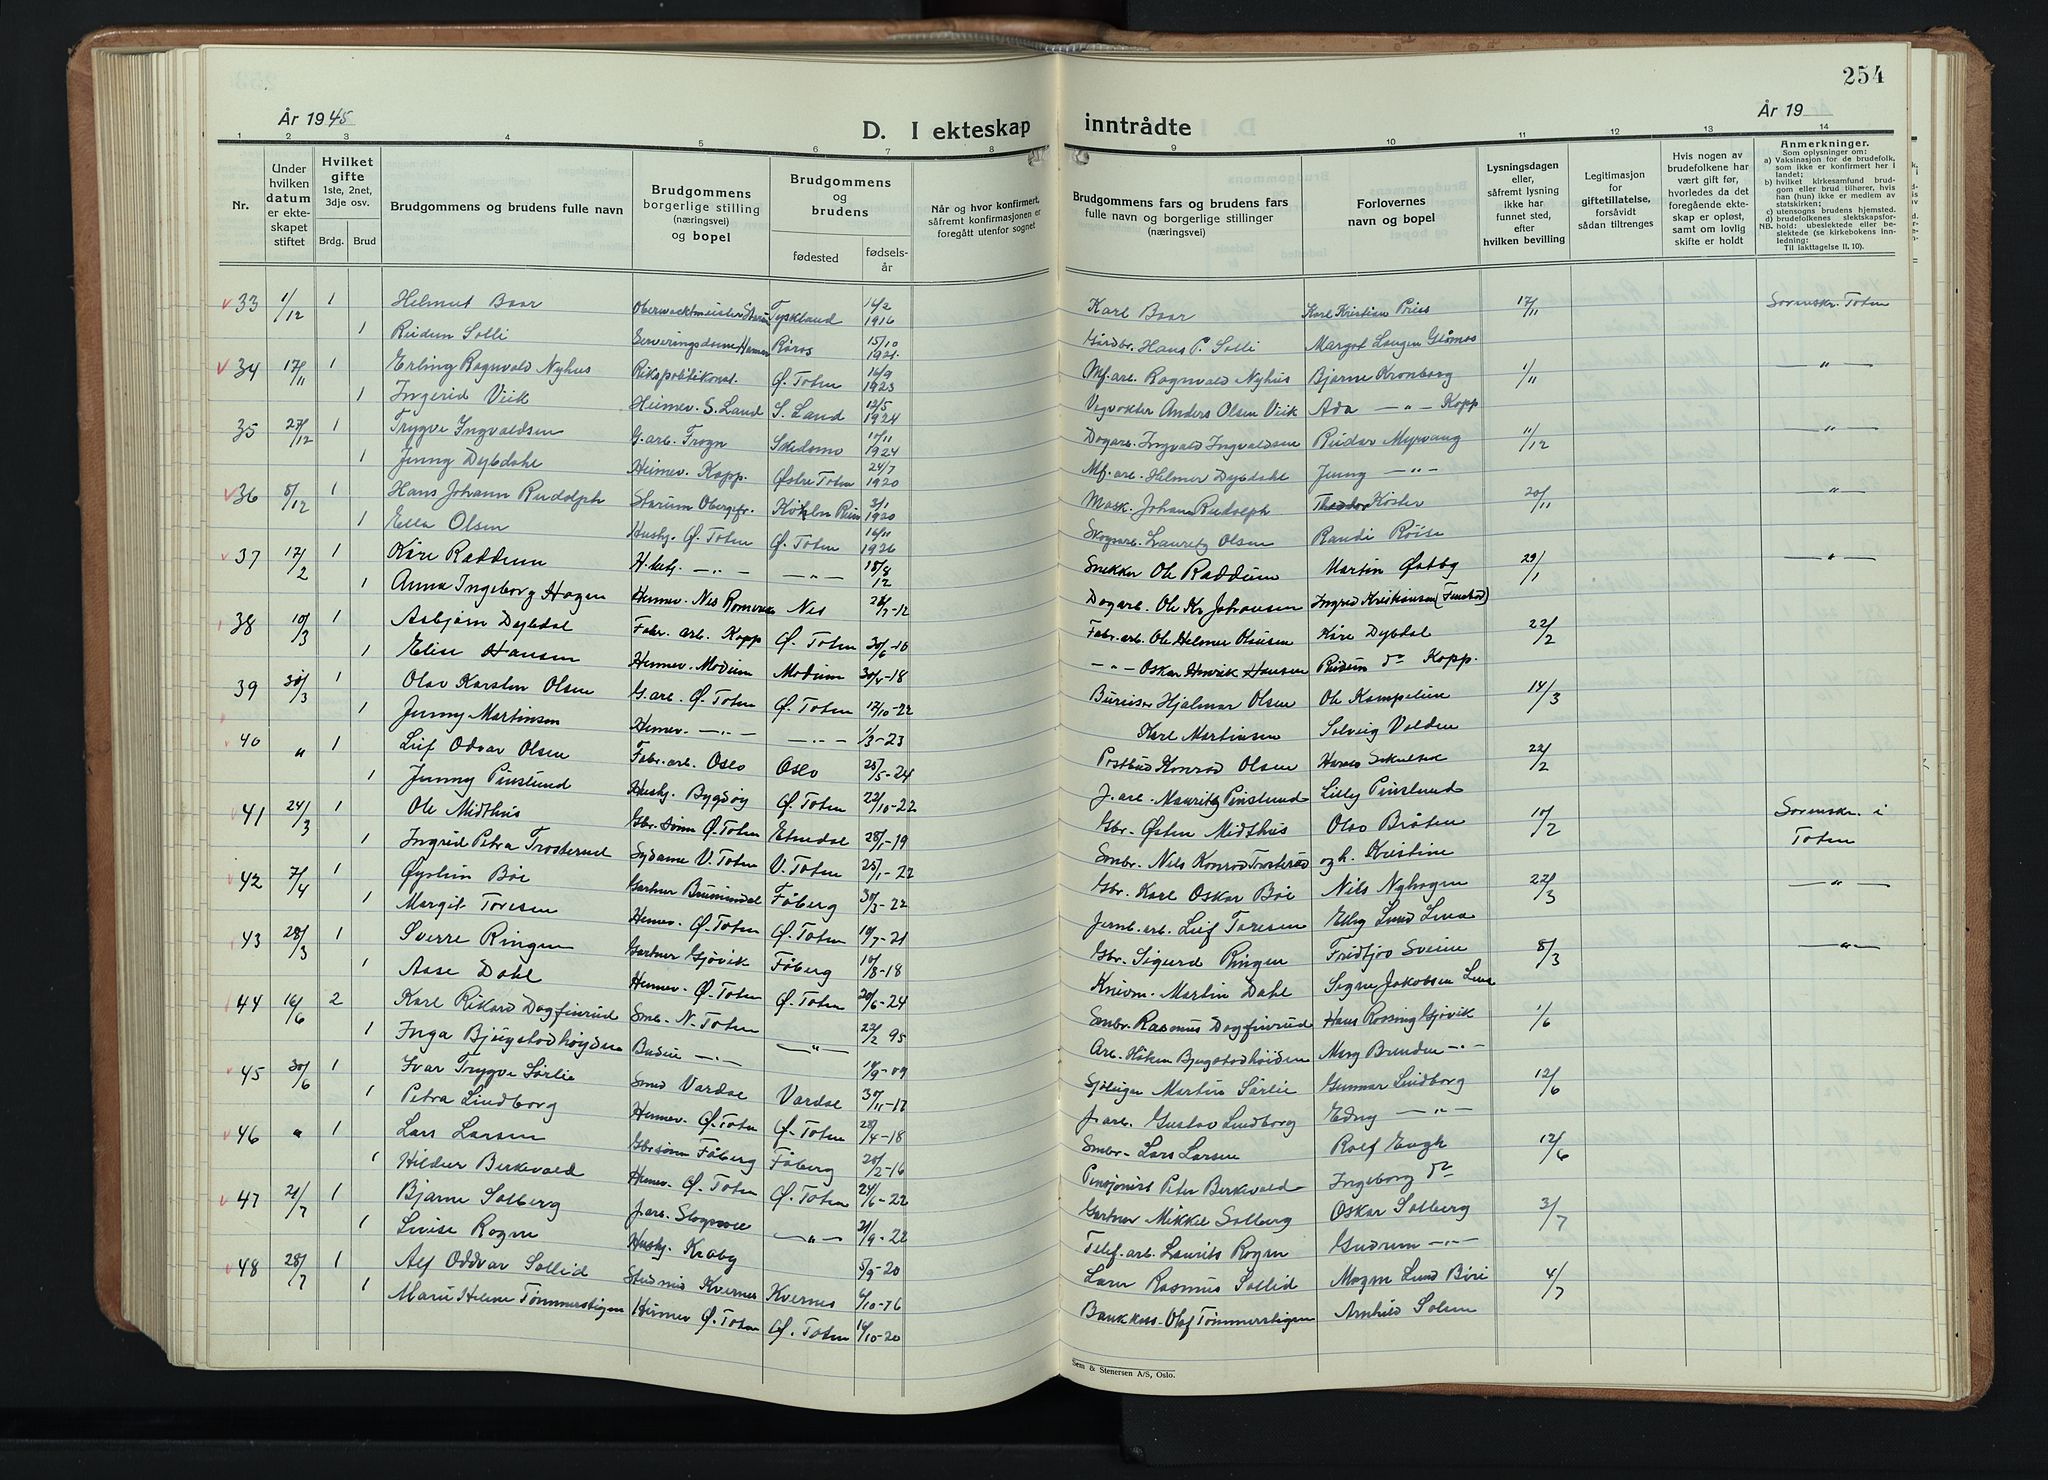 254
År 1945
År 19
D. I ekteskap inntrådte
1 2 3 4 5 6 7 8 9 10 11 12 13 14
Nr.
Under hvilken datum er ekteskapet stiftet
Hvilket gifte
1ste, 2net, 3dje osv.
Brdg. Brud
Brudgommens og brudens fulle navn
Brudgommens borgerlige stilling (næringsvei) og bopel
Brudgommens og brudens
fødested
fødselsår
Når og hvor konfirmert, såfremt konfirmasjonen er foregått utenfor sognet
Brudgommens fars og brudens fars fulle navn og borgerlige stillinger (næringsvei)
Forlovernes navn og bopel
Lysningsdagen eller, såfremt lysning ikke har funnet sted, efter hvilken bevilling
Legitimasjon for giftetillatelse, forsåvidt sådan tiltrenges
Hvis nogen av brudefolkene har vært gift før, hvorledes da det foregående ekteskap er opløst, samt om lovlig skifte er holdt
Anmerkninger.
Som oplysninger om:
a) Vaksinasjon for de brudefolk, som ikke er konfirmert her i landet;
b) hvilket kirkesamfund brudgom eller brud tilhører, hvis han (hun) ikke er medlem av statskirken;
c) utensogns brudens hjemsted.
d) brudefolkenes slektskapsforhold: ubeslektede eller beslektede (se kirkebokens innledning:
NB. Til iakttagelse II. 10).
33 1/12 1 Helmut Baar Tyskland 16/2 1916 Karl Baar Karl Kristian Priess 17/11 Sorenskr. Toten
1 Reidun Solli Serveringsdame Hamar Røros 15/10 1921 Gårdbr. Hans P. Solli Margot Laugen Glåmos
34 17/11 1 Erling Ragnvald Nyhus Rikspolitikonst. Ø. Toten 16/9 1923 Mf. arb. Ragnvald Nyhus Bjarne Kronborg 1/11 — " —
1 Ingerid Viik Heimev. S. Land S. Land 12/5 1924 Vegvokter Anders Olsen Viik Ada — " — Kapp
35 27/12 1 Trygve Ingvaldsen G. arb. Trogn Skedsmo 10/11 1924 Dagarb. Ingvald Ingvaldsen Reidar Myrvang 11/12 "
1 Jenny Dybdahl Heimev. Kapp. Østre Toten 24/7 1920 Mf. arb. Helmer Dybdahl Jenny — " —
36 8/12 1 Hans Johann Rudolph Starum Obergfr. 3/1 1920 Mask. Johann Rudolph Theodor Köster 20/11 "
1 Ella Olsen Hushj. Ø. Toten Ø. Toten 16/11 1926 Skogsarb. Lauritz Olsen Randi Røise
37 17/2 1 Kåre Raddum — " — — " — 18/8 12 Snekker Ole Raddum Martin Østby 29/1 "
1 Anna Ingeborg Hagen Hemev. Nes Romerike Nes 28/7-12 Dagarb. Ole Kr. Johansen Ingrid Kristiansen
38 10/3 1 Asbjørn Dybdal Fabr. arb. Kapp Ø. Toten 30/6-16 Fabr. arb. Ole Helmer Kåre Dybdal 22/2
1 Elise Hansen Hemev. Modum Modum 30/4-18 — " — Oskar Henrik Hansen Reidun do Kapp.
39 30/3 1 Olav Karsten Olsen G. arb. Ø. Toten Ø. Toten 17/10-22 Bureiser Hjalmar Olsen Ole Kampelien 14/3
1 Jenny Martinsen Hemev. — " — — " — 1/3-23 Karl Martinsen Solveig Volden
40 " 1 Leif Odvar Olsen Fabr. arb. Oslo Oslo 25/5-24 Postbud Konrad Olsen 22/2
1 Jenny Pinslund Hushj. Bygdøy Ø. Toten 22/10-22 J. arb. Mauritz Pinslund Lilly Pinslund
41 24/3 1 Ole Midthus Gbr. sønn Ø. Toten Etnedal 28/1-19 Gbr. Østen Midthus Olav Bråten 10/2 Sorenskr. i Toten
1 Ingrid Petra Trosterud Sydame V. Toten V. Toten 25/1-22 Smbr. Nils Konrad Trosterud og h. Kristine
42 7/4 1 Øystein Bøe Gartner Brumunddal Fåberg 30/3-22 Gbr. Karl Oskar Bøe Nils Nyhagen 22/3 — " —
1 Margit Toresen Hemev. Ø. Toten Ø. Toten 19/7-21 Jernb. arb. Leif Toresen Elby Lund Lena
43 28/3 1 Sverre Ringen Gartner Gjøvik Fåberg 10/8-18 Gbr. Sigurd Ringen Fridtjov Sveine 8/3 — " —
1 Aase Dahl Hemev. Ø. Toten Ø. Toten 20/6-24 Martin Dahl Signe Jakobsen Lena
44 16/6 2 Karl Rikard Dagfinrud Smb. N. Toten — " — 22/2 95 Smbr. Rasmus Dagfinrud Hans Rossing Gjøvik 1/6
1 Inga Bjugstadhøgden Budeie — " — 19/9-09 Arb. Håken Bjugstadhøiden Mary Brenden — " —
45 30/6 1 Ivar Trygve Sørlie Smed Vardal Vardal 30/11-17 Martin Sørlie Gunnar Lindborg 12/6
1 Petra Lindborg Hemev. Ø. Toten Ø. Toten 28/4-18 J. arb. Gustav Lindborg Edny — " —
46 " 1 Lars Larsen Gbr sønn Fåberg Fåberg 20/2-16 Smbr. Lars Larsen Rolf Engh 12/6
1 Hildur Berkvald Hemev. Ø. Toten Ø. Toten 24/6-22 Pensjonist Peter Berkvald Ingeborg do
47 21/7 1 Bjarne Solberg J. arb. — " — 21/9-22 Gartner Mikkel Solberg Oskar Solberg 3/7
1 Lovise Rogne Hushj. Kraby 5/9-20 Telef. arb. Laurits Rogne Gudrun — " —
48 28/7 1 Alf Oddvar Sollid Kvernes Kvernes 6/10-16 Lærer Rasmus Sollid Magne Lund Biri 4/7
1 Marie Helene Tømmerstigen Hemev. Ø. Toten Ø. Toten 16/10-20 Bankkass. Olaf Tømmerstigen Arnhild Solem
Sem & Stenersen A/S, Oslo.